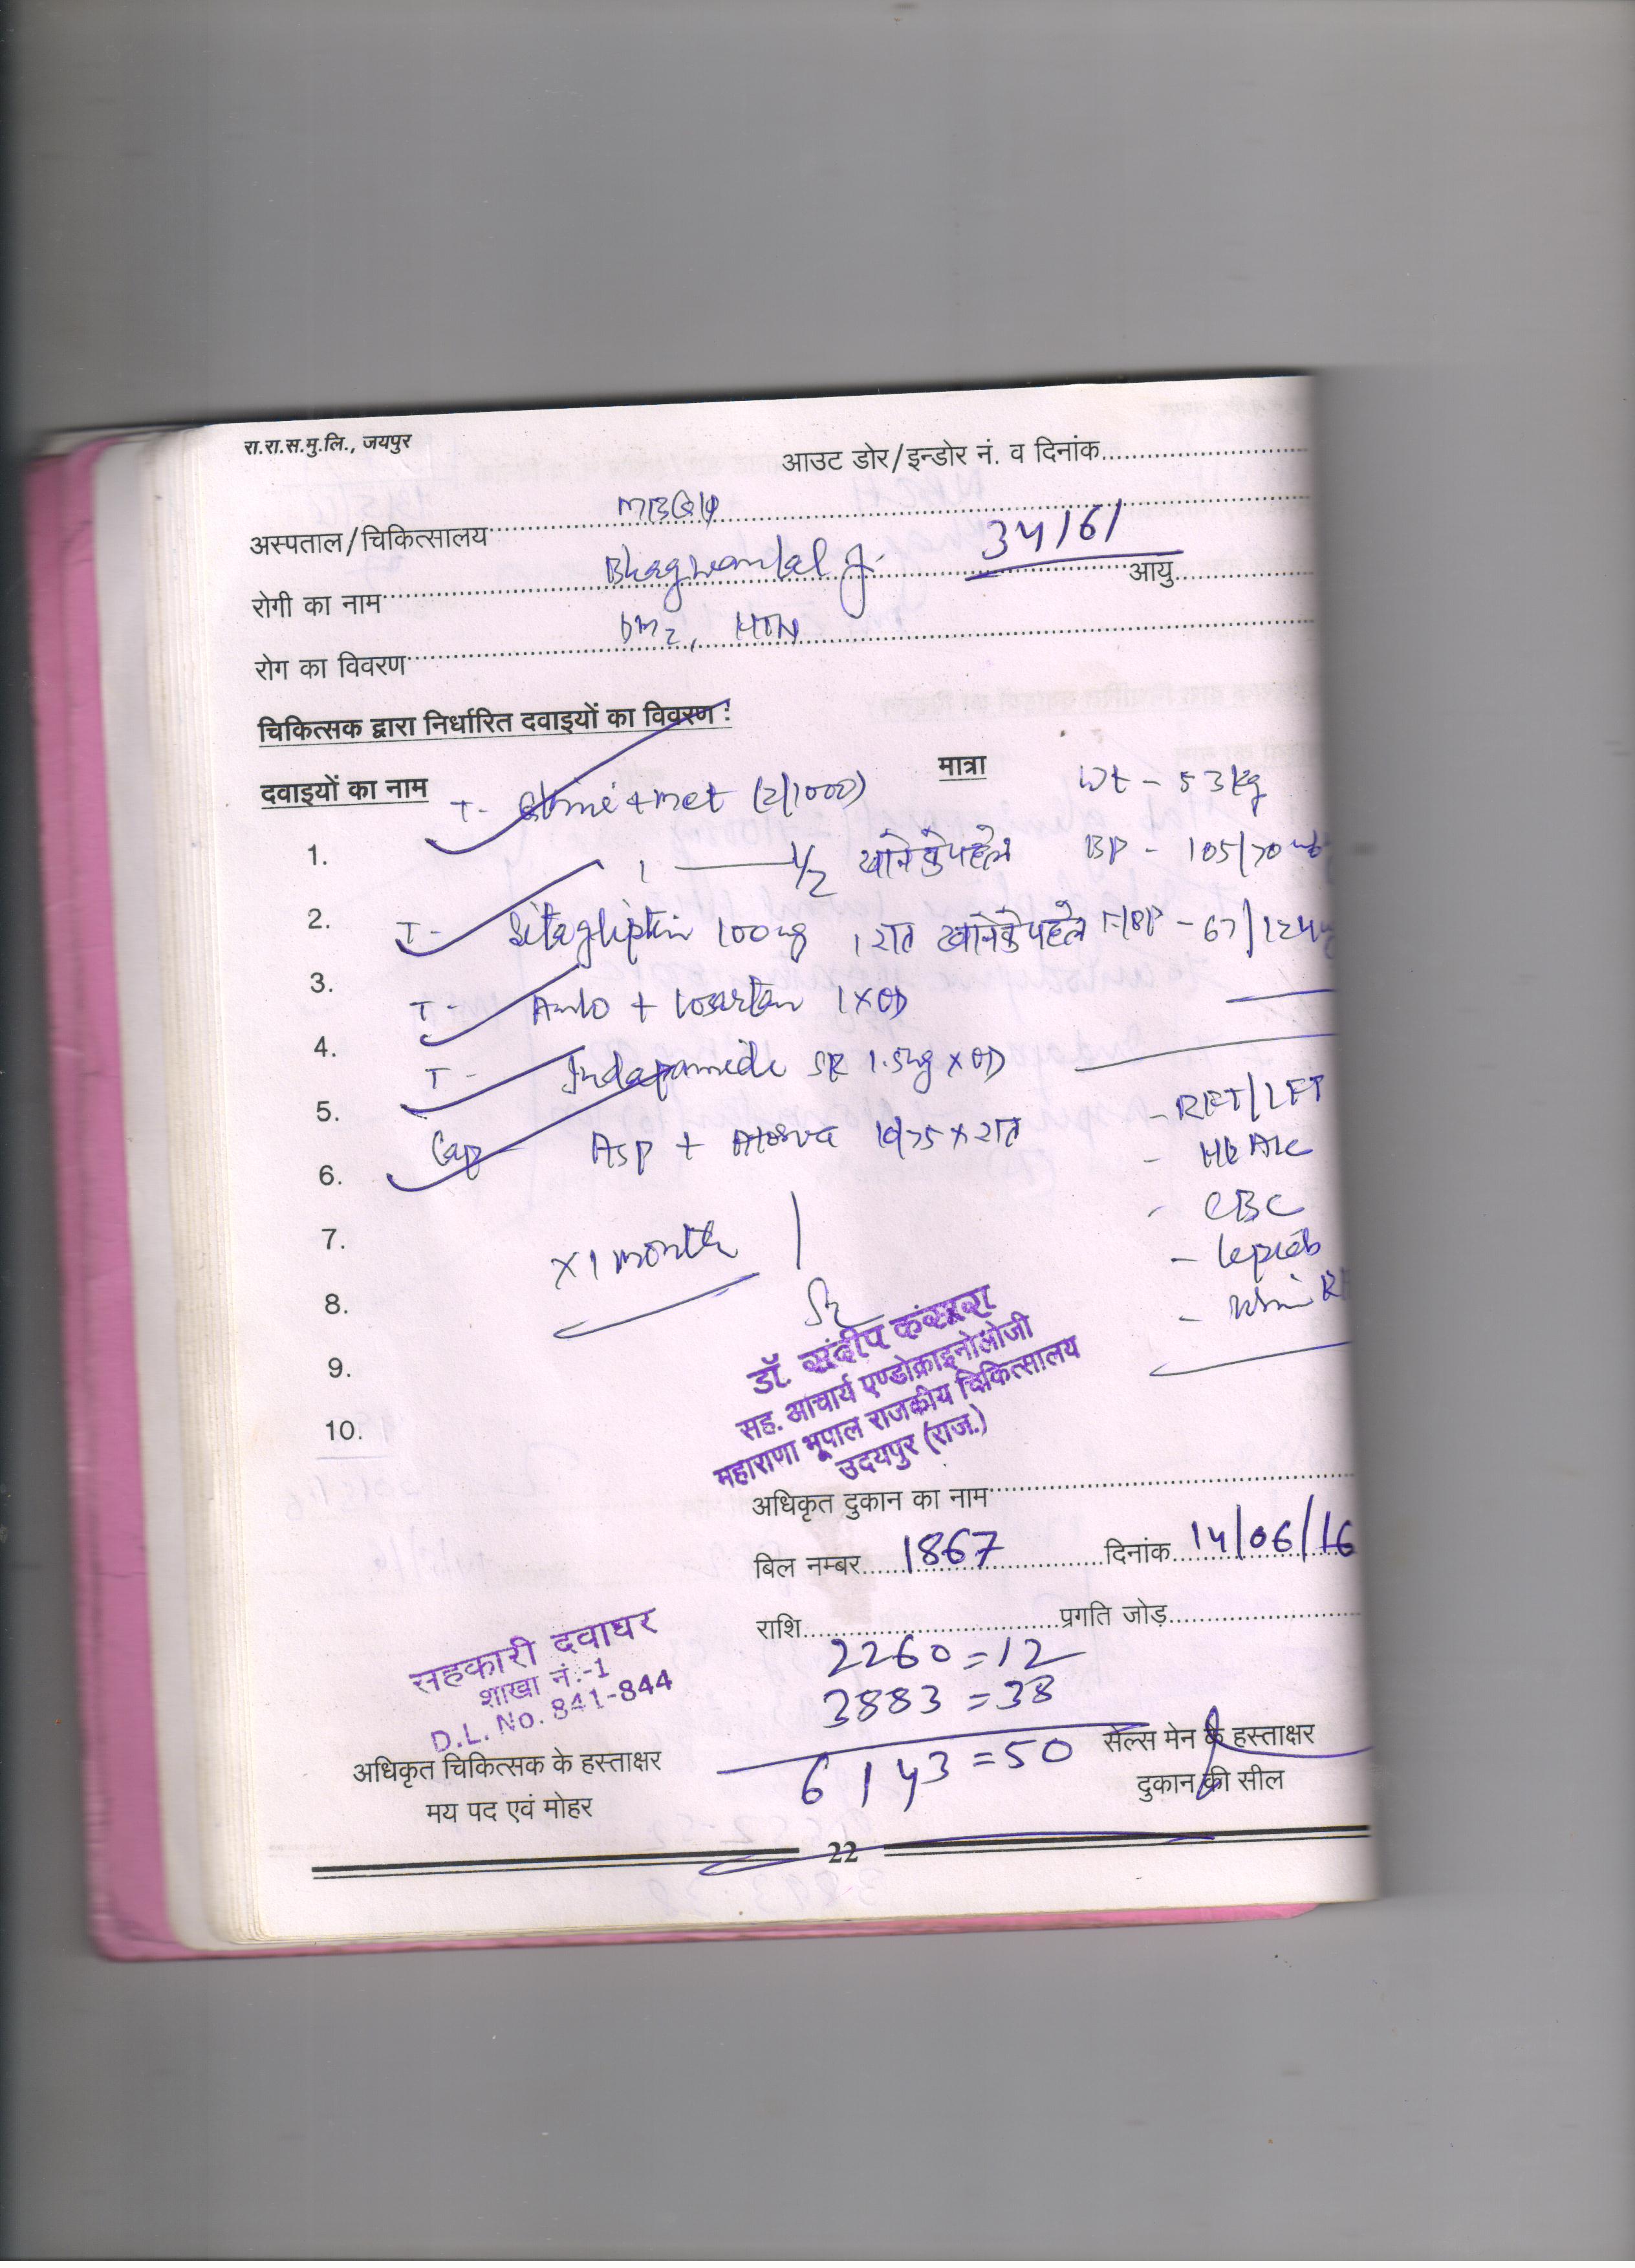 रा.रा.स.मु.लि., जयपुर
आउट डोर/इन्डोर नं. व दिनांक
अस्पताल/चिकित्सालय
रोगी का नाम Bhagwanlal J. 34/61 आयु
रोग का विवरण DM2, HTN
चिकित्सक द्वारा निर्धारित दवाइयों का विवरण :
दवाइयों का नाम मात्रा
T- Glimi + met (2/1000) Wt - 53 kg
1. 1 — 1/2 खाने के पहले BP - 105/70
2. T- Sitagliptin 100mg 1 रात खाने के पहले - 67/124
3. T- Amlo + Losartan 1 x OD
4. T- Indapamide SR 1.5mg x OD
5. - RFT/LFT
Cap Asp + Atorva 10/75 x रात
6. - HbA1c
- CBC
7. x 1 month
8.
9.
10.
डॉ. संदीप कंसारा
सह. आचार्य एण्डोक्राइनोलोजी
महाराणा भूपाल राजकीय चिकित्सालय
उदयपुर (राज.)
अधिकृत दुकान का नाम
बिल नम्बर 1867 दिनांक 14/06/16
राशि प्रगति जोड़
2260=12
3883=38
6143=50
सहकारी दवाघर
शाखा नं.-1
D.L. No. 841-844
अधिकृत चिकित्सक के हस्ताक्षर
मय पद एवं मोहर
सेल्स मेन के हस्ताक्षर
दुकान की सील
22